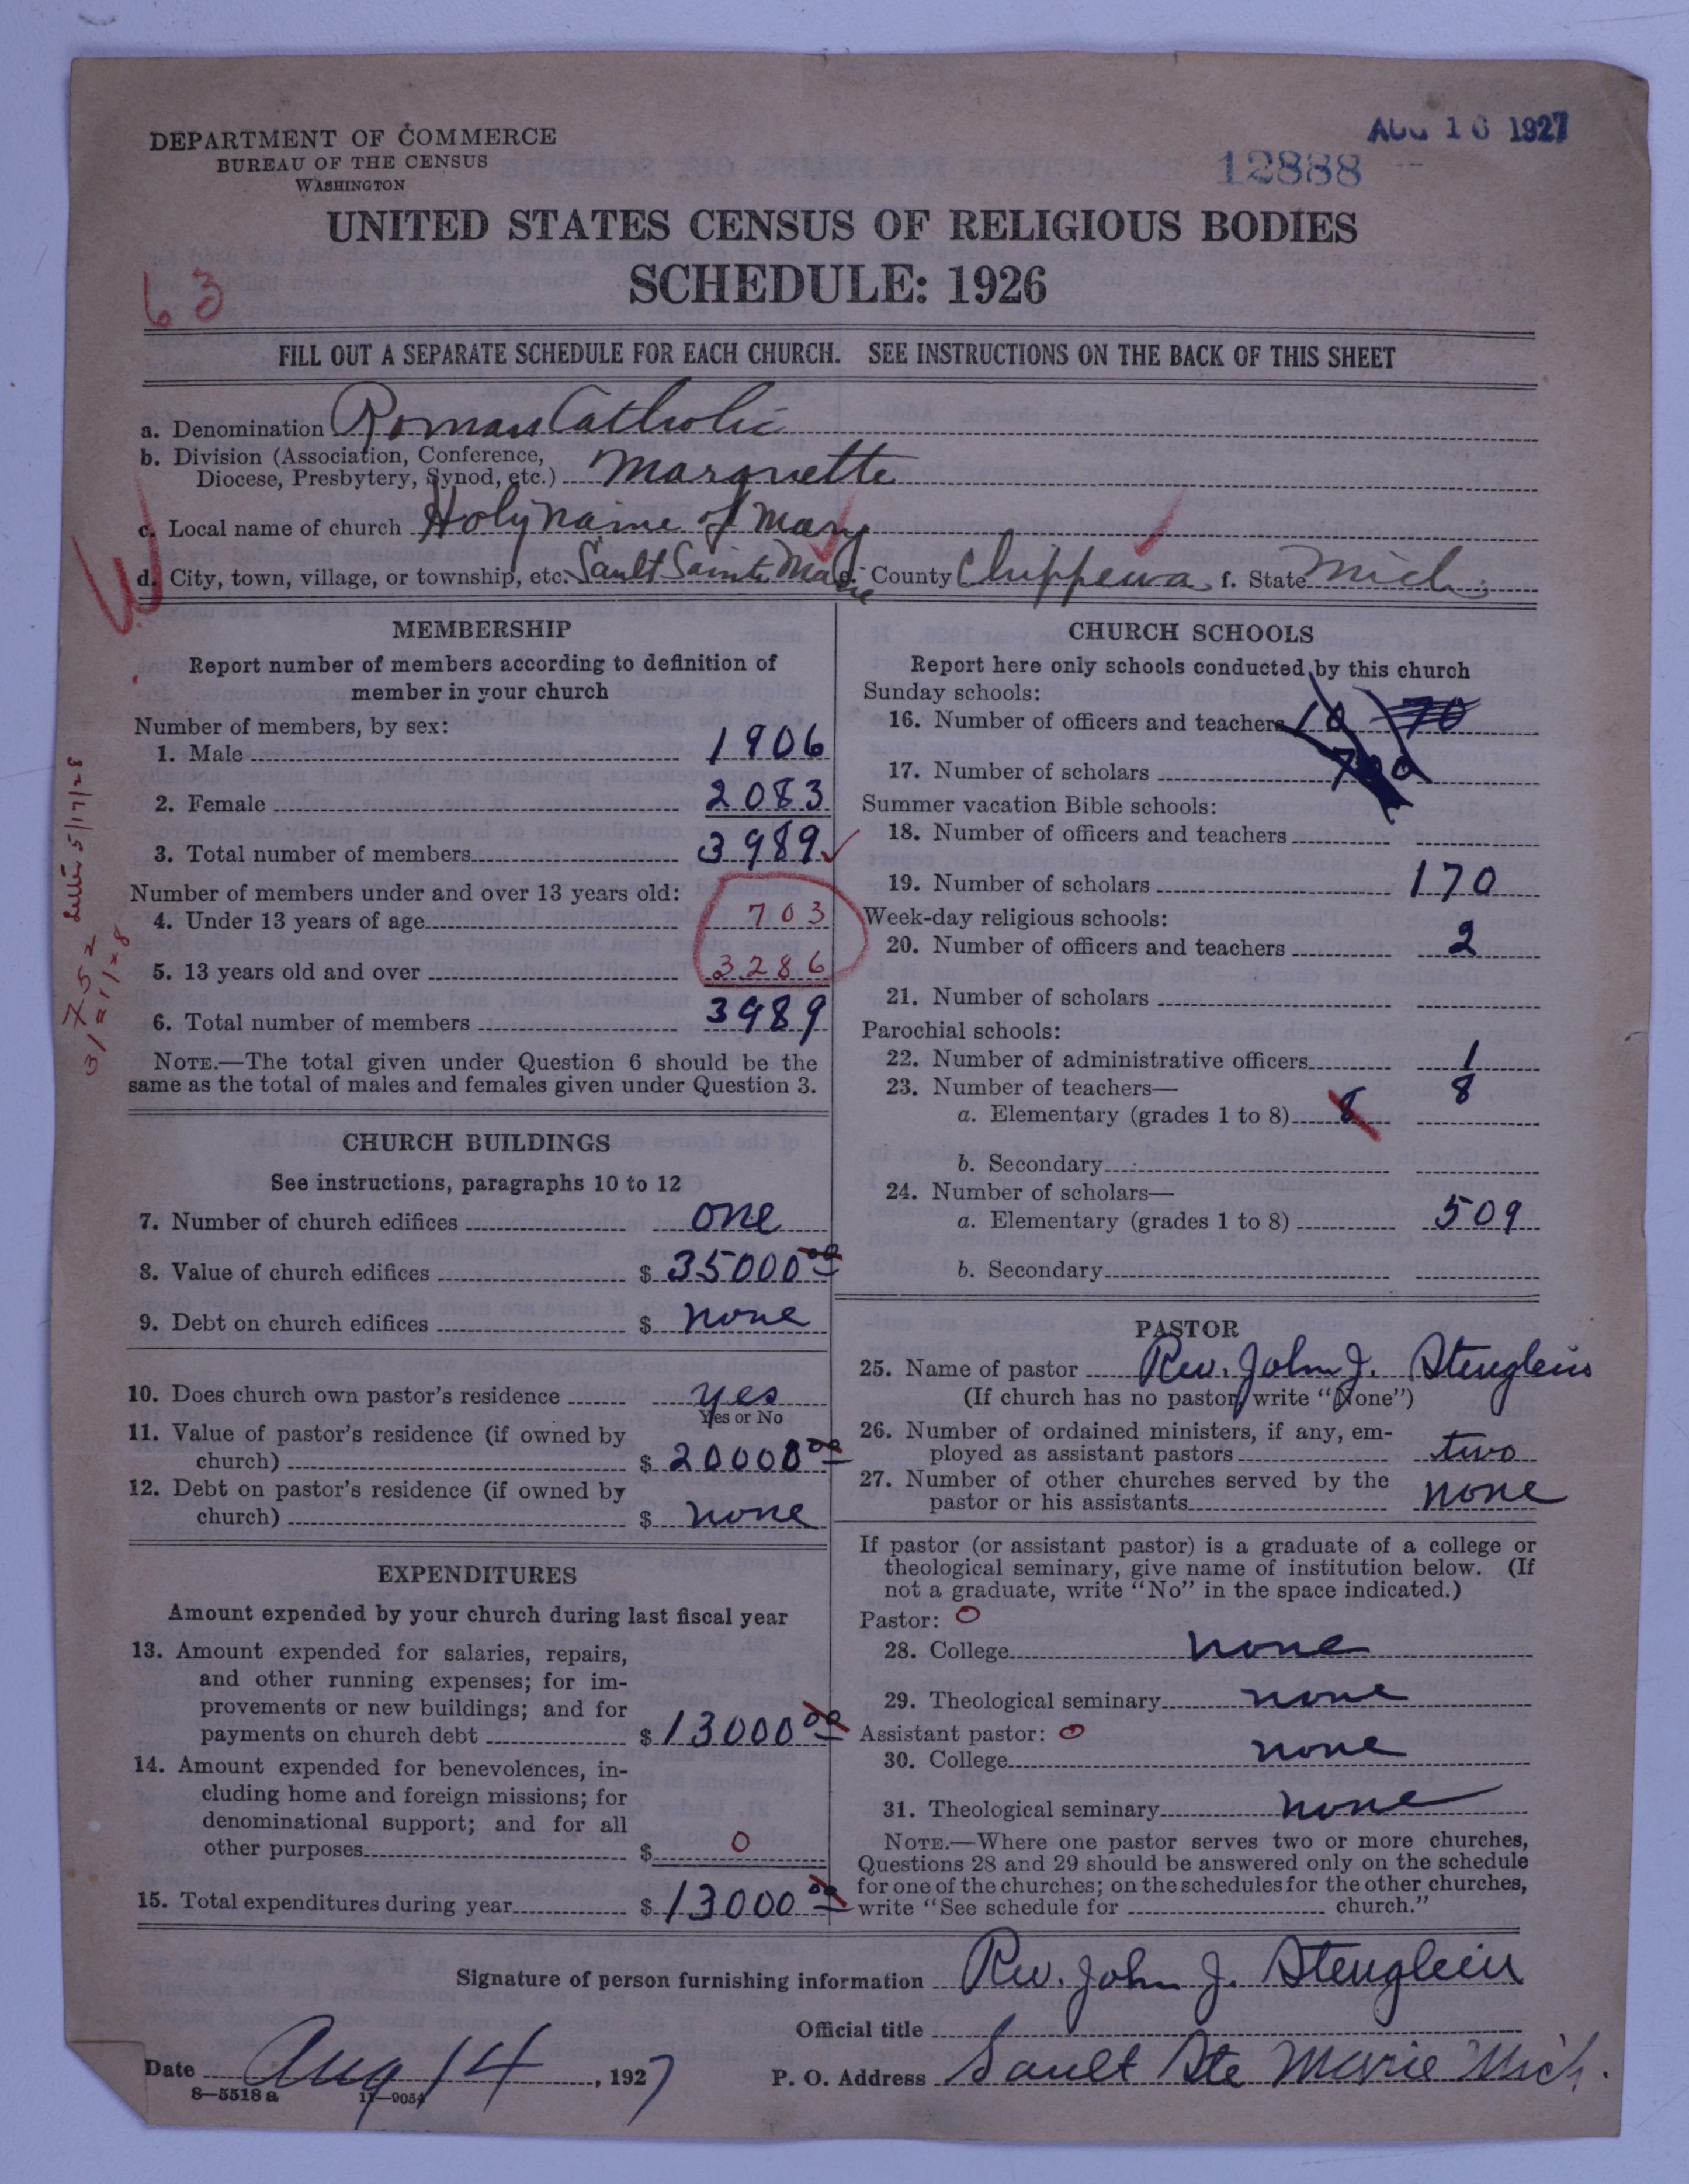 DEPARTMENT OF COMMERCE
BUREAU OF THE CENSUS
WASHINGTON
AUG 16 1927
12888
UNITED STATES CENSUS OF RELIGIOUS BODIES
SCHEDULE: 1926
63
FILL OUT A SEPARATE SCHEDULE FOR EACH CHURCH. SEE INSTRUCTIONS ON THE BACK OF THIS SHEET
a. Denomination Roman Catholic
b. Division (Association, Conference,
Diocese, Presbytery, Synod, etc.) Marquette
c. Local name of church Holy name of Mary
d. City, town, village, or township, etc. Sault Sainte Marie e. County Chippewa f. State Mich.
MEMBERSHIP
Report number of members according to definition of
member in your church
Number of members, by sex:
1. Male 1906
2. Female 2083
3. Total number of members 3989
Number of members under and over 13 years old:
4. Under 13 years of age 703
5. 13 years old and over 3286
6. Total number of members 3989
NOTE.—The total given under Question 6 should be the
same as the total of males and females given under Question 3.
752 Letter 5/17/28
CHURCH BUILDINGS
See instructions, paragraphs 10 to 12
7. Number of church edifices one
8. Value of church edifices $ 35000 00
9. Debt on church edifices $ none
10. Does church own pastor's residence yes
Yes or No
11. Value of pastor's residence (if owned by
church) $ 20000 00
12. Debt on pastor's residence (if owned by
church) $ none
EXPENDITURES
Amount expended by your church during last fiscal year
13. Amount expended for salaries, repairs,
and other running expenses; for im-
provements or new buildings; and for
payments on church debt $ 13000 00
14. Amount expended for benevolences, in-
cluding home and foreign missions; for
denominational support; and for all
other purposes $ 0
15. Total expenditures during year $ 13000 00
CHURCH SCHOOLS
Report here only schools conducted by this church
Sunday schools:
16. Number of officers and teachers 10 70
17. Number of scholars
Summer vacation Bible schools:
18. Number of officers and teachers
19. Number of scholars 170
Week-day religious schools:
20. Number of officers and teachers 2
21. Number of scholars
Parochial schools:
22. Number of administrative officers 1
23. Number of teachers— 8
a. Elementary (grades 1 to 8) 8
b. Secondary
24. Number of scholars—
a. Elementary (grades 1 to 8) 509
b. Secondary
PASTOR
25. Name of pastor Rev. John J. Stenglein
(If church has no pastor, write "None")
26. Number of ordained ministers, if any, em-
ployed as assistant pastors two
27. Number of other churches served by the
pastor or his assistants none
If pastor (or assistant pastor) is a graduate of a college or
theological seminary, give name of institution below. (If
not a graduate, write "No" in the space indicated.)
Pastor: 0
28. College none
29. Theological seminary none
Assistant pastor: 0
30. College none
31. Theological seminary none
NOTE.—Where one pastor serves two or more churches,
Questions 28 and 29 should be answered only on the schedule
for one of the churches; on the schedules for the other churches,
write "See schedule for church."
Signature of person furnishing information Rev. John J. Stenglein
Official title
Date Aug 14, 1927 P. O. Address Sault Ste Marie Mich.
8—5518a 11—9054